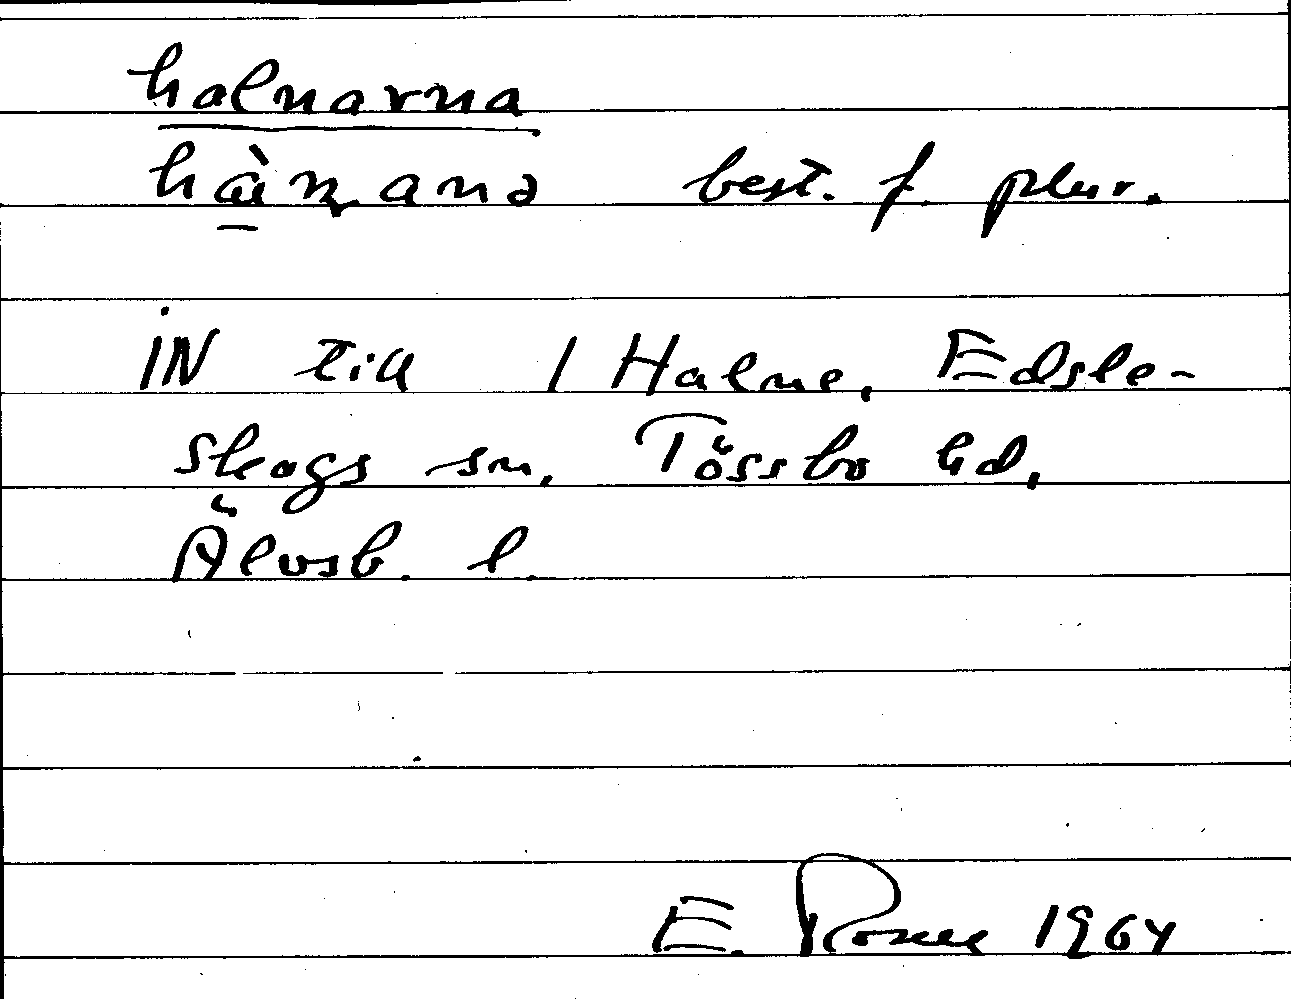 halnarna
hàṇana best. f. plur.
IN till 1 Halne, Edsle-
skogs sn, Tössbo hd,
Älvsb. l.
E. 1964